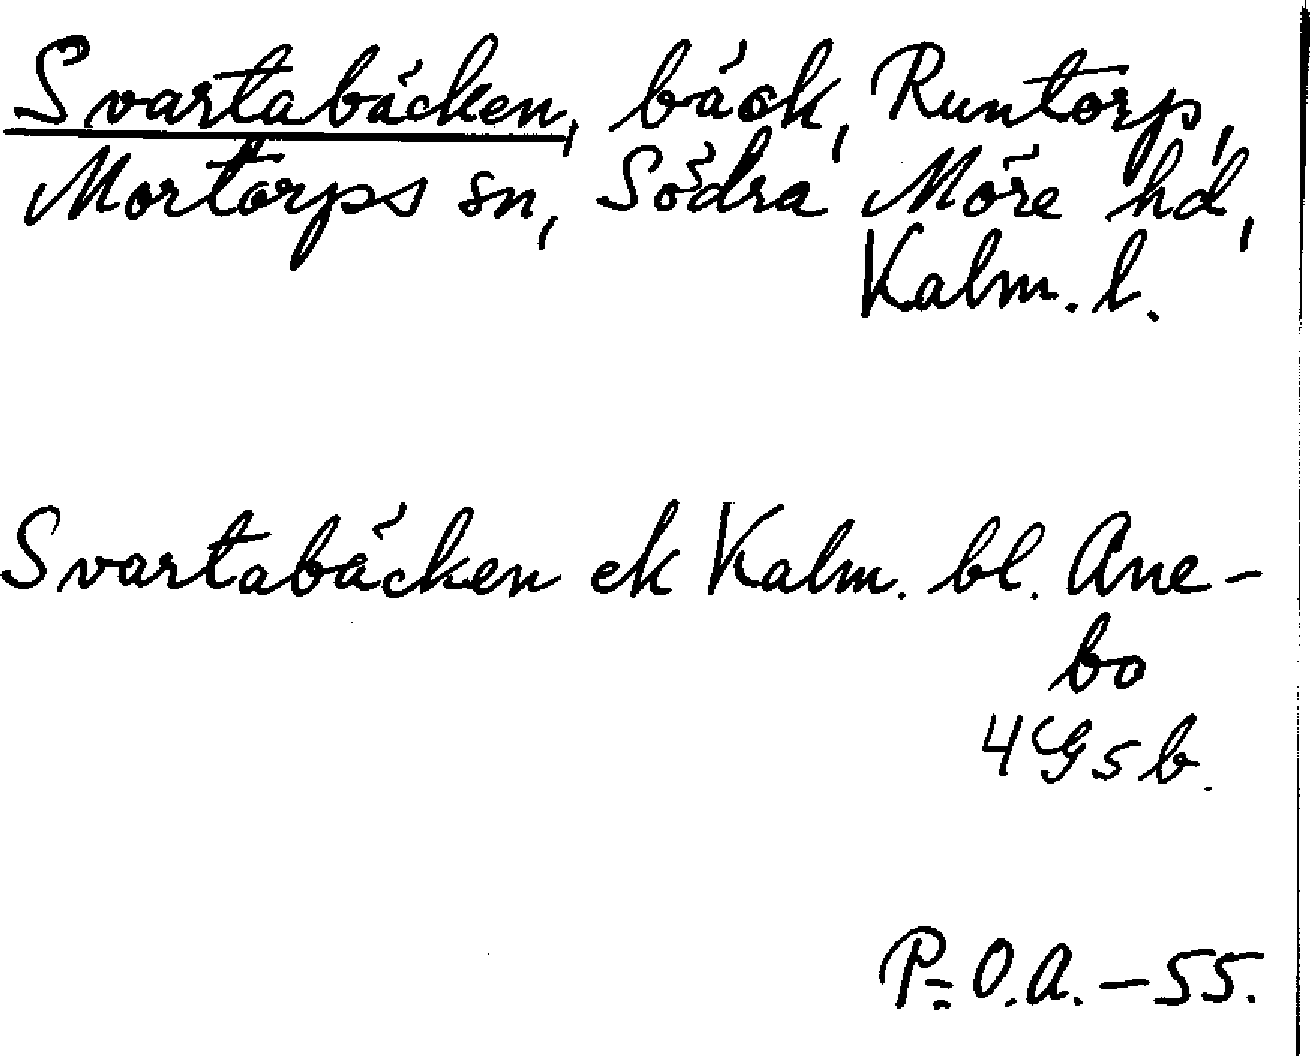 Svartabäcken, bäck, Runtorp,
Mortorps sn, Södra Möre hd,
Kalm. l.
Svartabäcken ek Kalm. bl. Ane-
bo
4G5b.
P-O.A.-55.